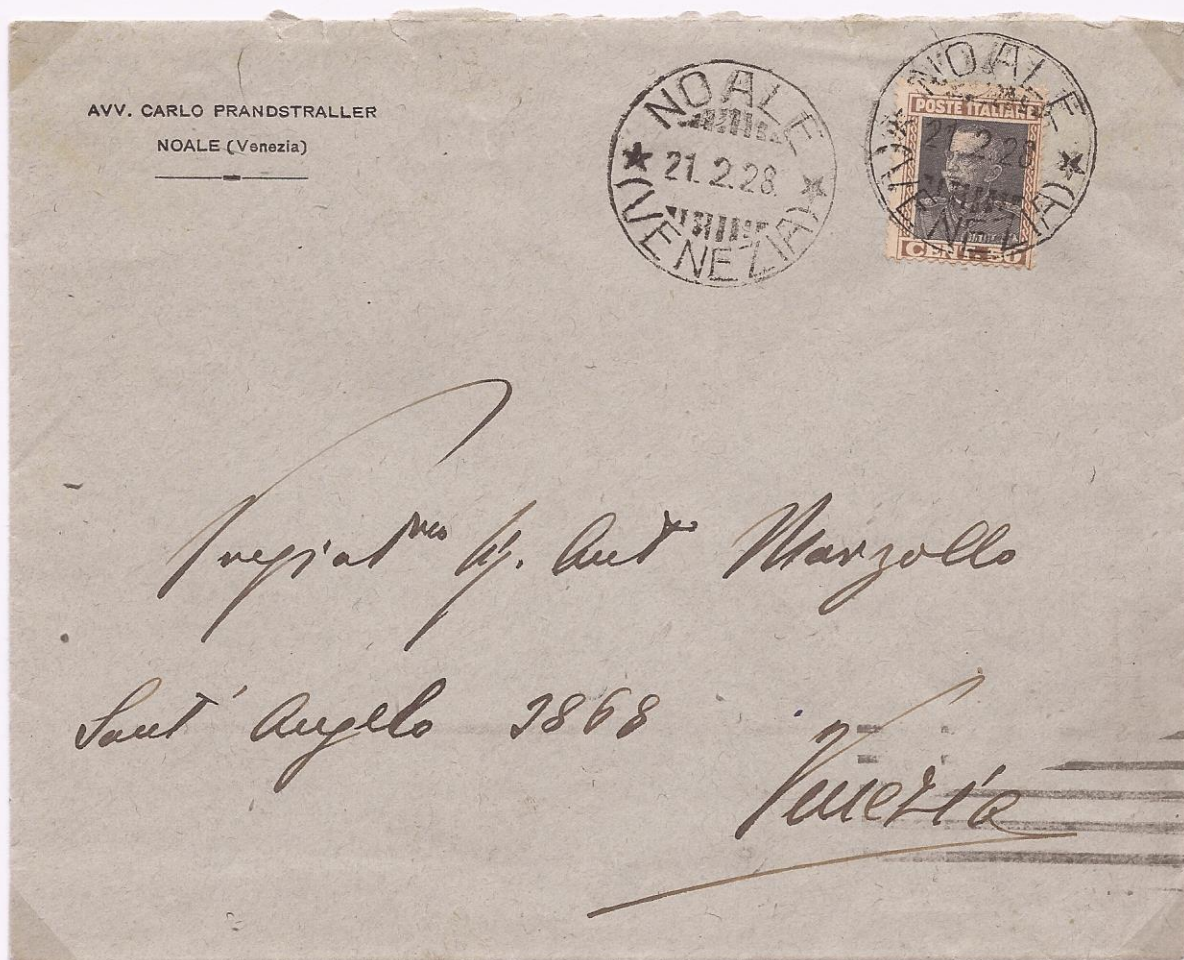 AVV. CARLO PRANDSTRALLER
NOALE (Venezia)
NOALE
21.2.28
(VENEZIA)
NOALE
21.2.28
(VENEZIA)
POSTE ITALIANE
CENT. 50
Pregiat mo Sig. Ant Marzollo
Sant' Angelo 3868
Venezia